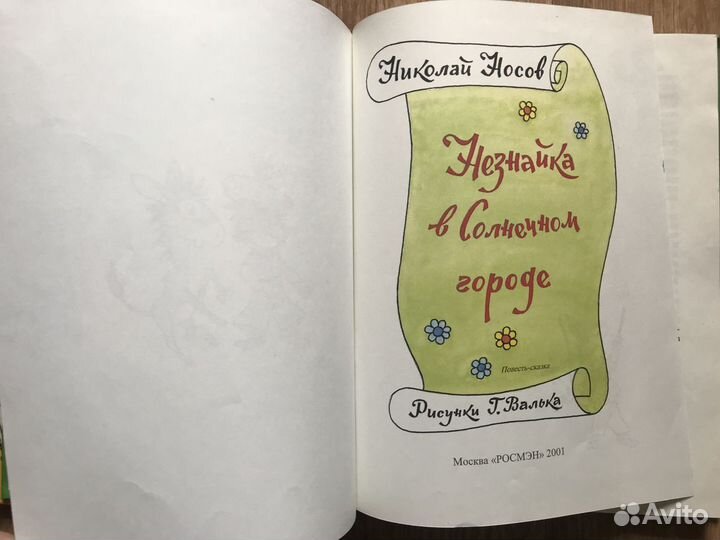 Николай Носов
Незнайка
в Солнечном
городе
Повесть-сказка
Рисунки Г. Валька
Москва «РОСМЭН» 2001
Avito